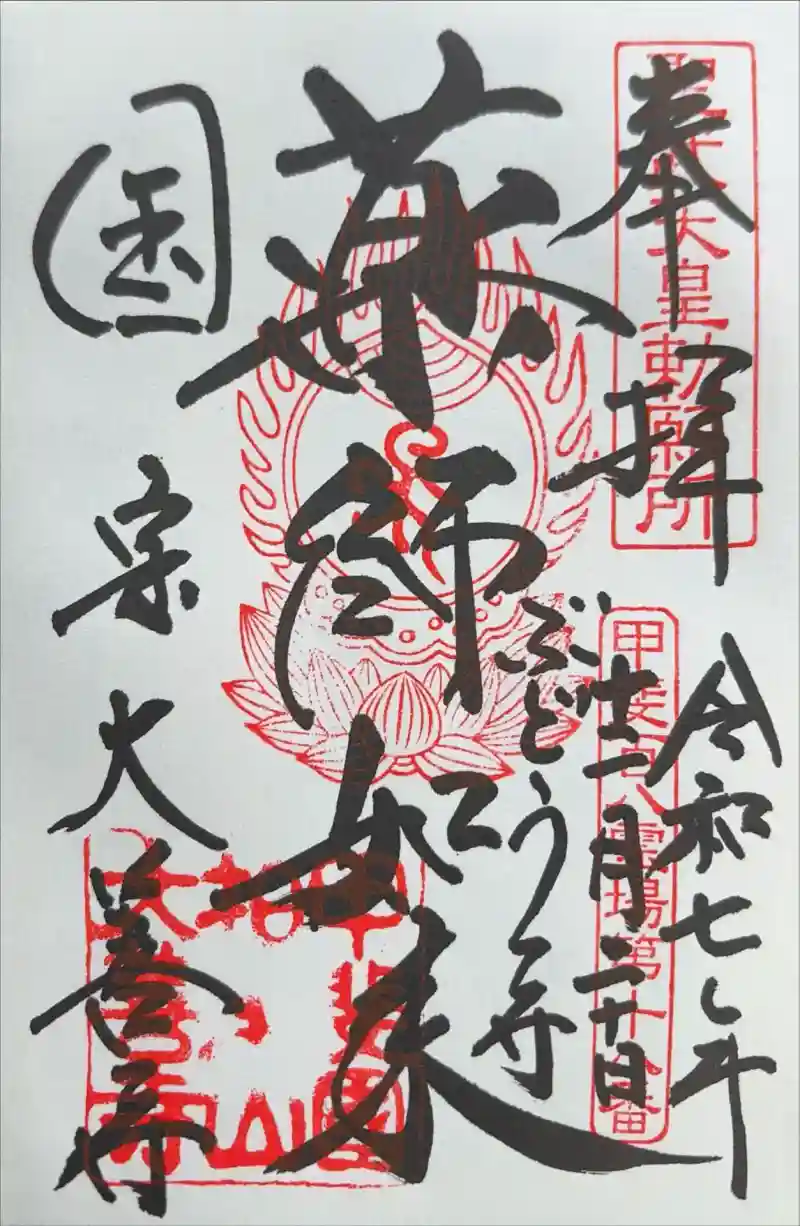 奉拝
聖武天皇勅願所
令和七年
十一月二十日
甲斐百八霊場第十番
ぶどう寺
薬師如来
国宝
大善寺
甲斐國
柏尾山
大善寺